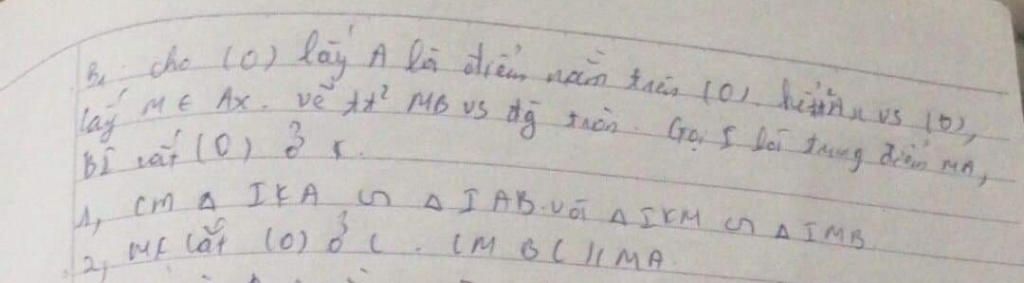 B1. cho (O) lấy A là điểm nằm trên (O), kẻ tt² Ax vs (O),
lấy M ∈ Ax. vẽ tt² MB vs đg tròn. Gọi I là trung điểm MA,
BI cắt (O) ở K.
1, CM Δ IKA ∽ Δ IAB. và Δ IKM ∽ Δ IMB
2, MK cắt (O) ở C. CM BC // MA